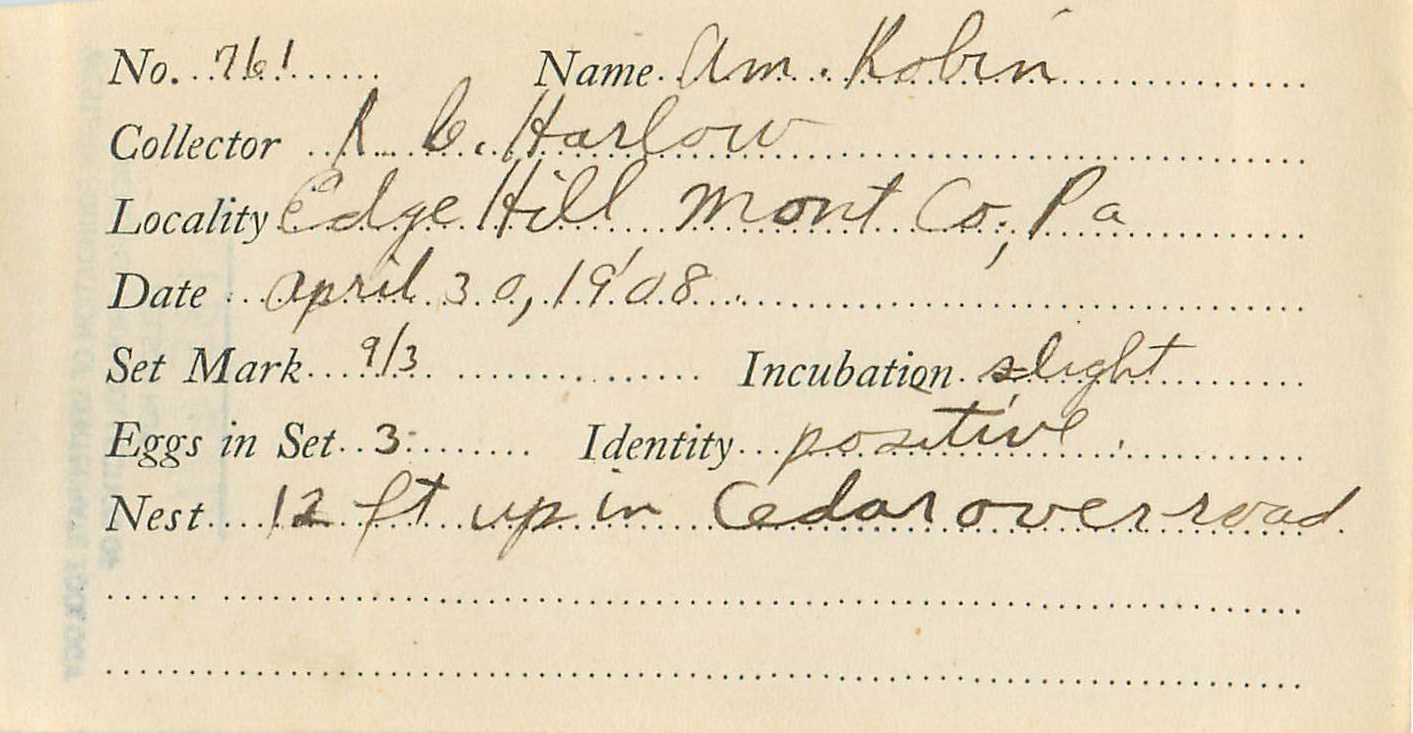 No. 761 Name Am. Robin
Collector R. C. Harlow
Locality Edge Hill, Mont Co., Pa
Date April 30, 1908
Set Mark 9/3 Incubation slight
Eggs in Set 3 Identity positive.
Nest 12 ft up in Cedar over road.